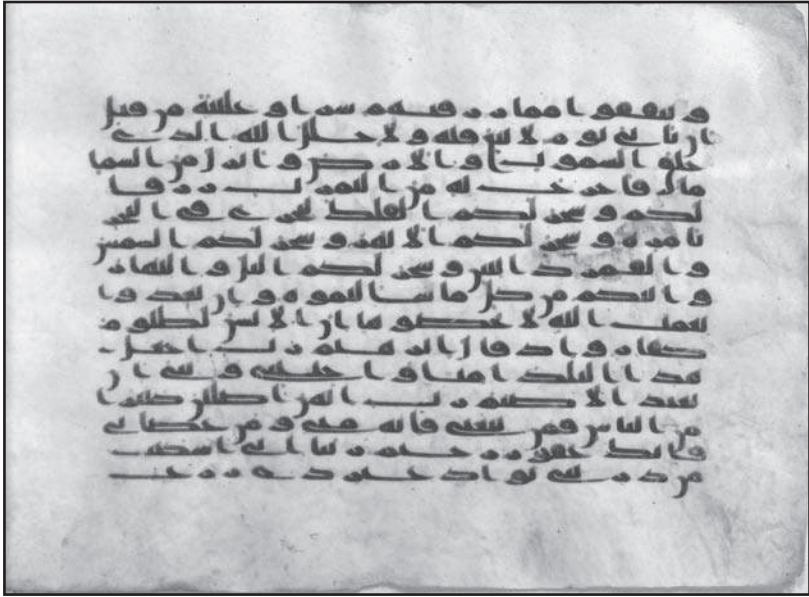 و ينفقوا مما رزقنهم سرا و علنية من قبل
ان ياتي يوم لا بيع فيه و لا خلل الله الذي
خلق السموت و الارض و انزل من السما
ما فاخرج به من الثمرت رزقا
لكم و سخر لكم الفلك لتجري في البحر
بامره و سخر لكم الانهر و سخر لكم الشمس
و القمر دابين و سخر لكم اليل و النهار
و اتيكم من كل ما سالتموه و ان تعدوا
نعمت الله لا تحصوها ان الانسن لظلوم
كفار و اذ قال ابرهيم رب اجعل
هذا البلد امنا و اجنبني و بني ان
نعبد الاصنم رب انهن اضللن كثيرا
من الناس فمن تبعني فانه مني و من عصاني
فانك غفور رحيم ربنا اني اسكنت
من ذريتي بواد غير ذي زرع